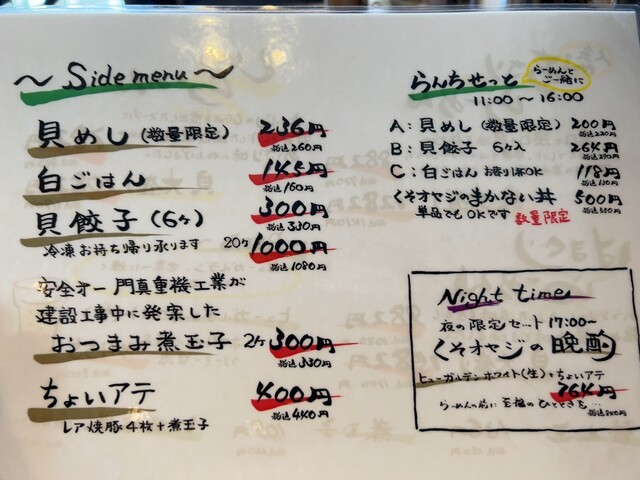 〜 Side menu 〜
貝めし (数量限定) 236円
税込260円
白ごはん 145円
税込160円
貝餃子 (6ヶ) 300円
税込330円
冷凍お持ち帰り承ります 20ヶ 1000円
税込1080円
安全オー門真重機工業が
建設工事中に発案した
おつまみ煮玉子 2ヶ 300円
税込330円
ちょいアテ 400円
税込440円
レア焼豚4枚+煮玉子
らんちせっと
らーめんと
ご一緒に
11:00〜16:00
A:貝めし (数量限定) 200円
税込220円
B:貝餃子 6ヶ入 264円
税込290円
C:白ごはん お替り1杯OK 118円
税込130円
くそオヤジのまかない丼 500円
税込550円
単品でもOKです 数量限定
Night time
夜の限定セット 17:00〜
くそオヤジの晩酌
ヒューガルデンホワイト(生)+ちょいアテ
764円
税込840円
らーめんの前に至福のひとときを…